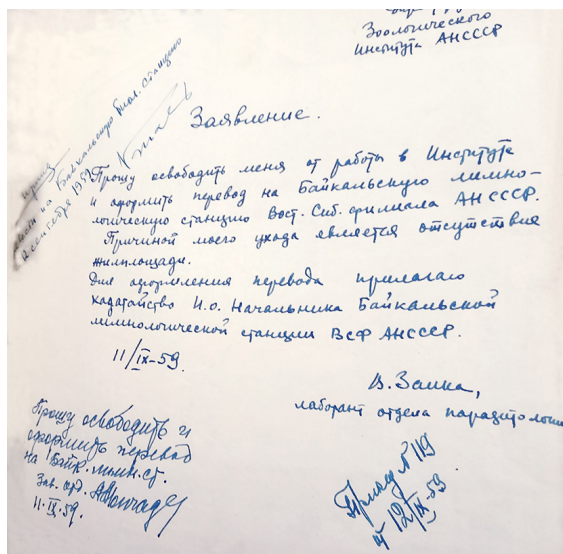 Зоологического
Института АНССSР
Заявление.
Прошу освободить меня от работы в Института
и оформить перевод на Байкальскую лимно-
логическую станцию Вост. Сиб. филиала АН СССР.
Причиной моего ухода является отсутствие
жилплощади.
Для оформления перевода прилагаю
ходатайство И.о. Начальника Байкальской
лимнологической станции ВСФ АНСССР.
11/IX-59.
В. Заика,
лаборант отдела паразитологии
на Байкальскую биол. станцию
сентября 1959
Прошу освободить и
оформить перевод
на Байк. лимн. ст.
Зав. отд.
11.IX.59.
Приказ № 119
от 12/IX-59